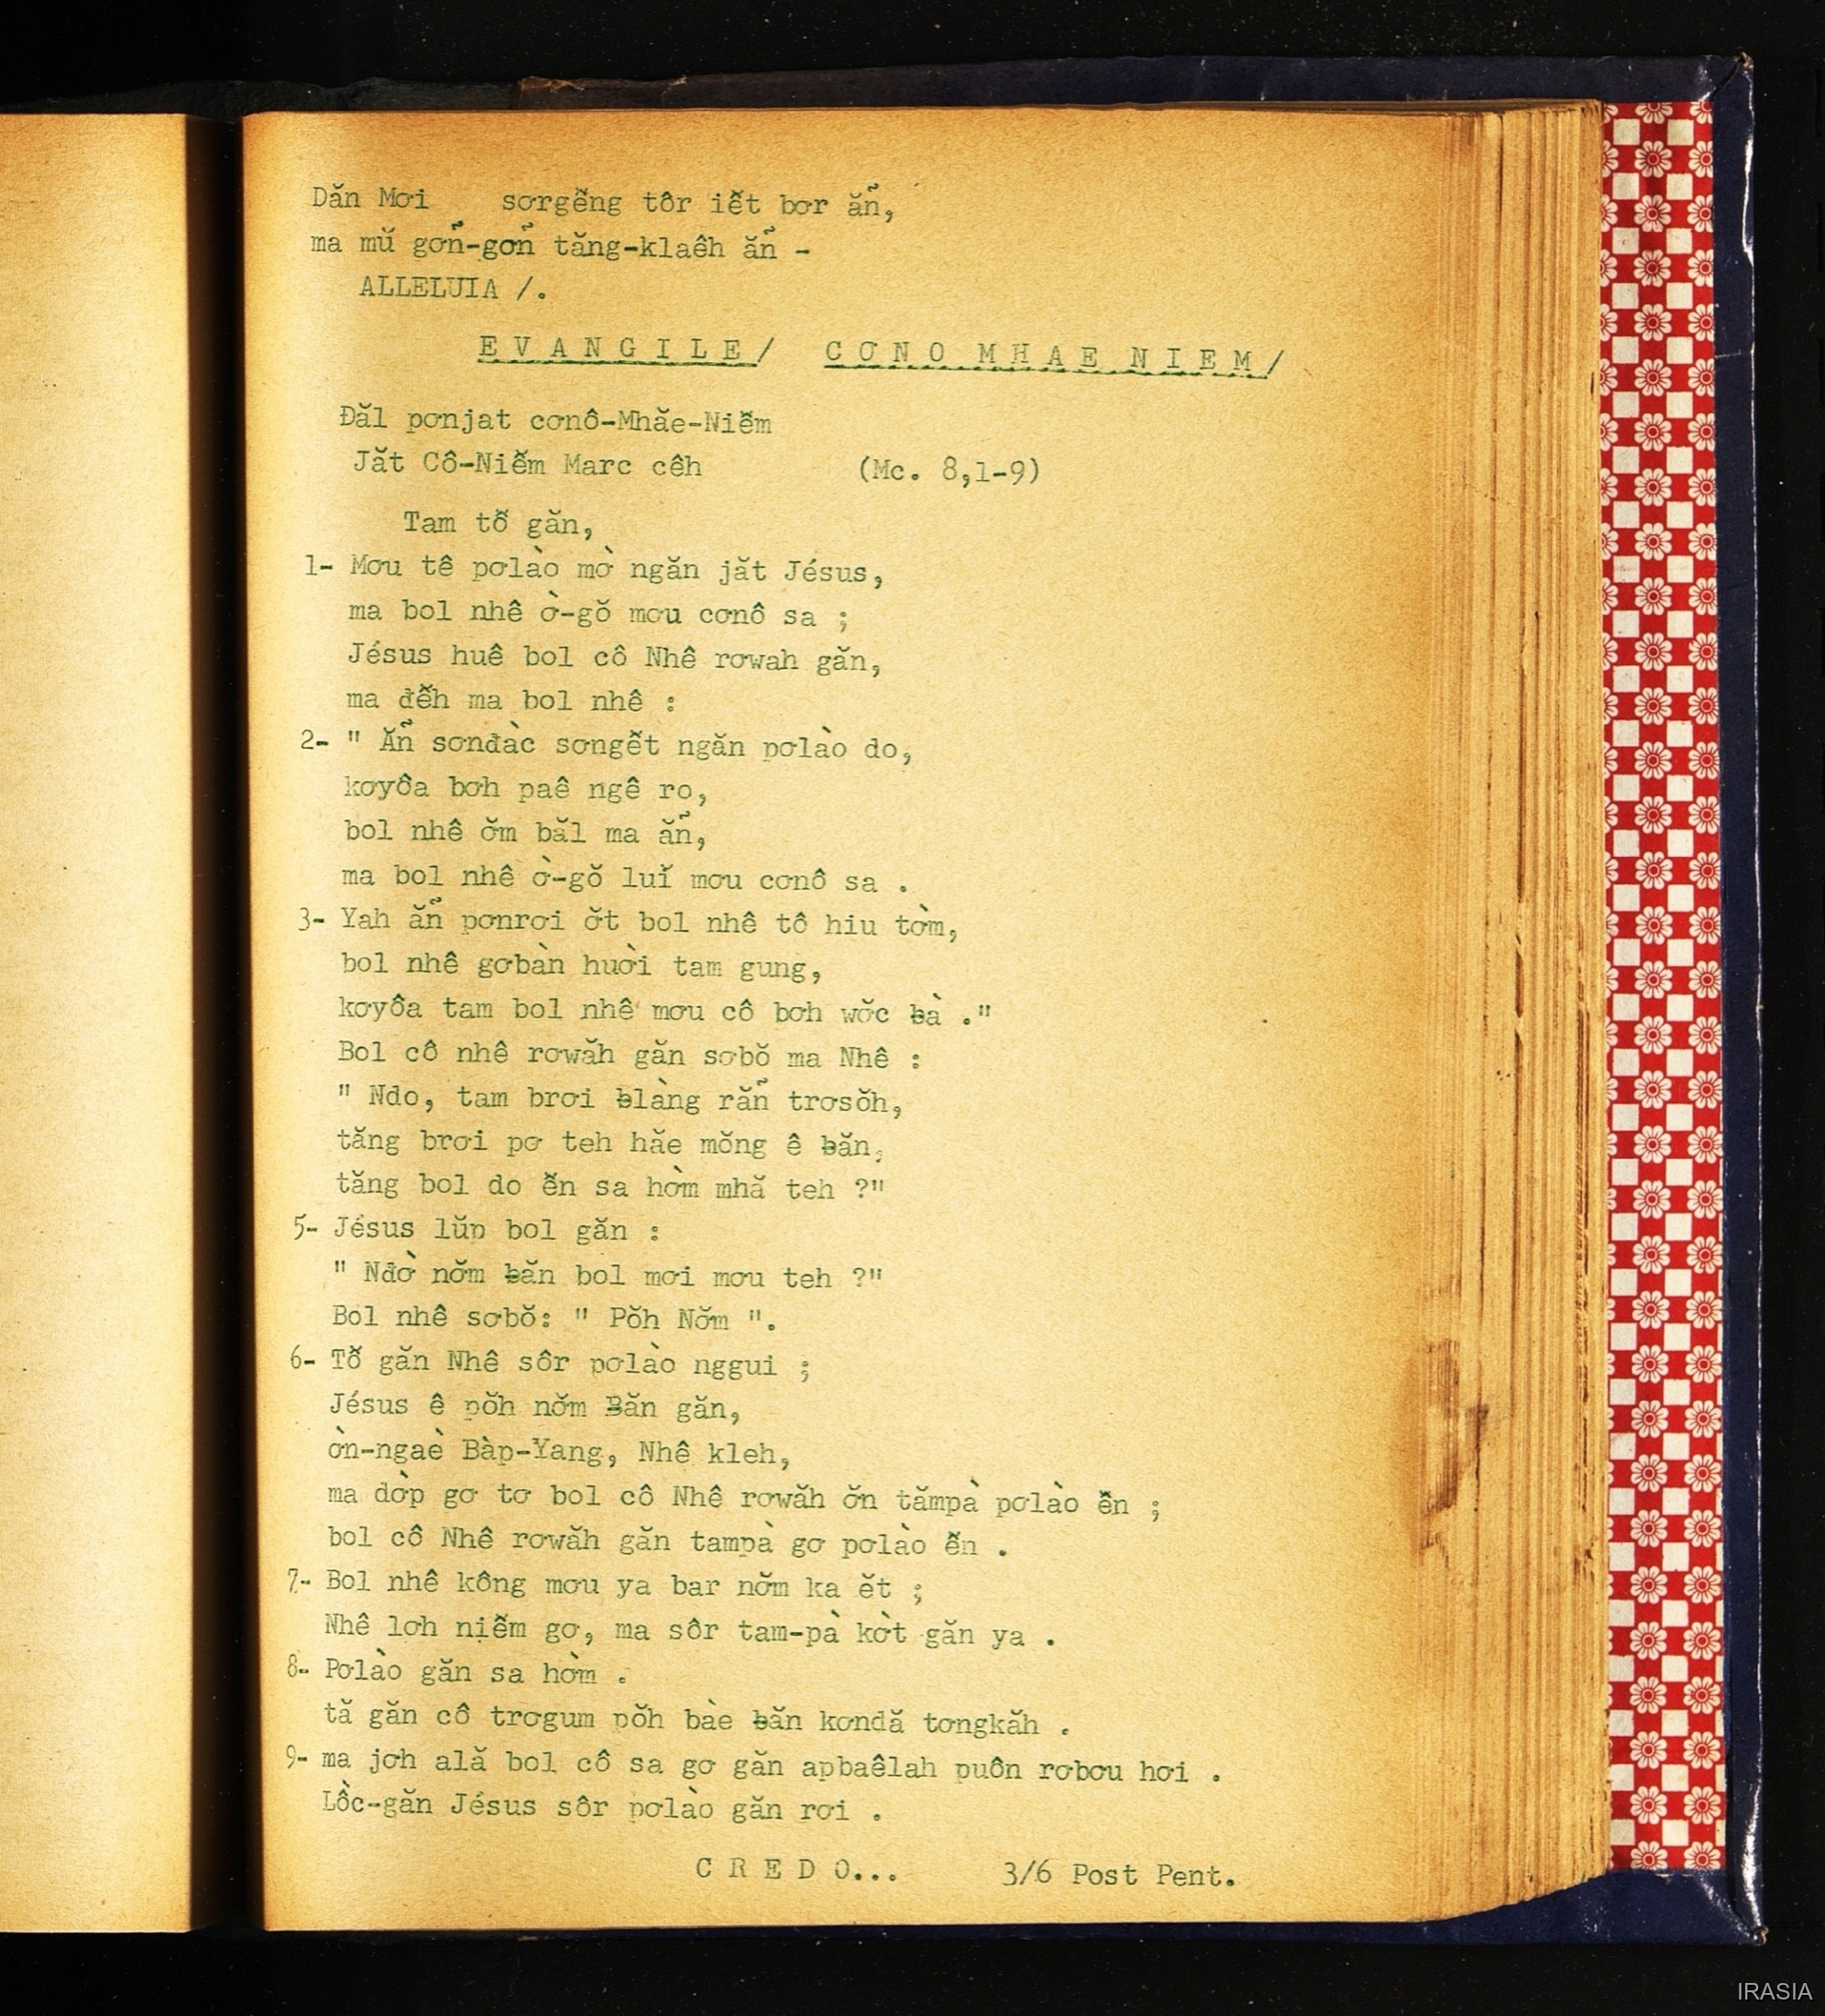 Dăn Mơi    sơrgễng tôr iết bơr ăñ,
ma mŭ gơñ-gơñ tăng-klaêh ăñ -
ALLELUIA /.
E V A N G I L E /   C Ơ N O M H A E N I E M /
Đăl pơnjat cơnô-Mhăe-Niễm
Jăt Cô-Niễm Marc cêh    (Mc. 8,1-9)
Tam tỗ găn,
1- Mơu tê pơlào mờ ngăn jăt Jésus,
ma bol nhê ờ-gŏ mơu cơnô sa ;
Jésus huê bol cô Nhê rơwah găn,
ma đễh ma bol nhê :
2- " Ăñ sơnđàc sơngết ngăn pơlào do,
kơyôa bơh paê ngê ro,
bol nhê ơ̆m băl ma ăñ,
ma bol nhê ờ-gŏ luĭ mơu cơnô sa .
3- Yah ăñ pơnrơi ơ̆t bol nhê tô hiu tờm,
bol nhê gơbàn huời tam gung,
kơyôa tam bol nhê mơu cô bơh wơ̆c ƀà ."
Bol cô nhê rơwăh găn sơbŏ ma Nhê :
" Ndo, tam brơi ƀlàng răñ trơsŏh,
tăng brơi pơ teh hăe mŏng ê ƀăn,
tăng bol do ễn sa hờm mhă teh ?"
5- Jésus lŭp bol găn :
" Nđờ nơ̆m ƀăn bol mơi mơu teh ?"
Bol nhê sơbŏ: " Pŏh Nơ̆m ".
6- Tỗ găn Nhê sôr pơlào nggui ;
Jésus ê pŏh nơ̆m Ƀăn găn,
ờn-ngaè Bàp-Yang, Nhê kleh,
ma dờp gơ tơ bol cô Nhê rơwăh ơ̆n tămpà pơlào ễn ;
bol cô Nhê rơwăh găn tampà gơ pơlào ễn .
7- Bol nhê kông mơu ya bar nơ̆m ka ĕt ;
Nhê lơh niễm gơ, ma sôr tam-pà kờt găn ya .
8- Pơlào găn sa hờm .
tă găn cô trơgum pŏh bàe ƀăn kơndă tơngkăh .
9- ma jơh ală bol cô sa gơ găn apbaêlah puôn rơbơu hơi .
Lồc-găn Jésus sôr pơlào găn rơi .
C R E D O...    3/6 Post Pent.
IRASIA